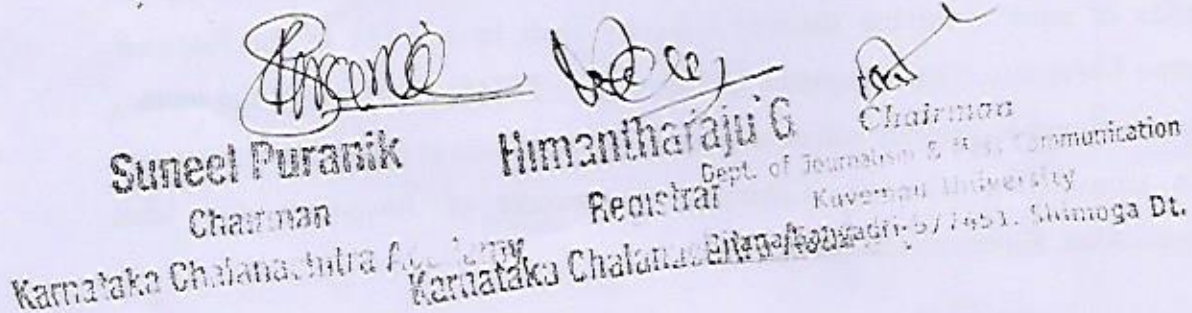 Suneel Puranik
Chairman
Karnataka Chalanachitra Academy
Himantharaju G
Registrar
Karnataka
Chairman
Dept. of Journalism & Mass Communication
Kuvempu University
577451. Shimoga Dt.